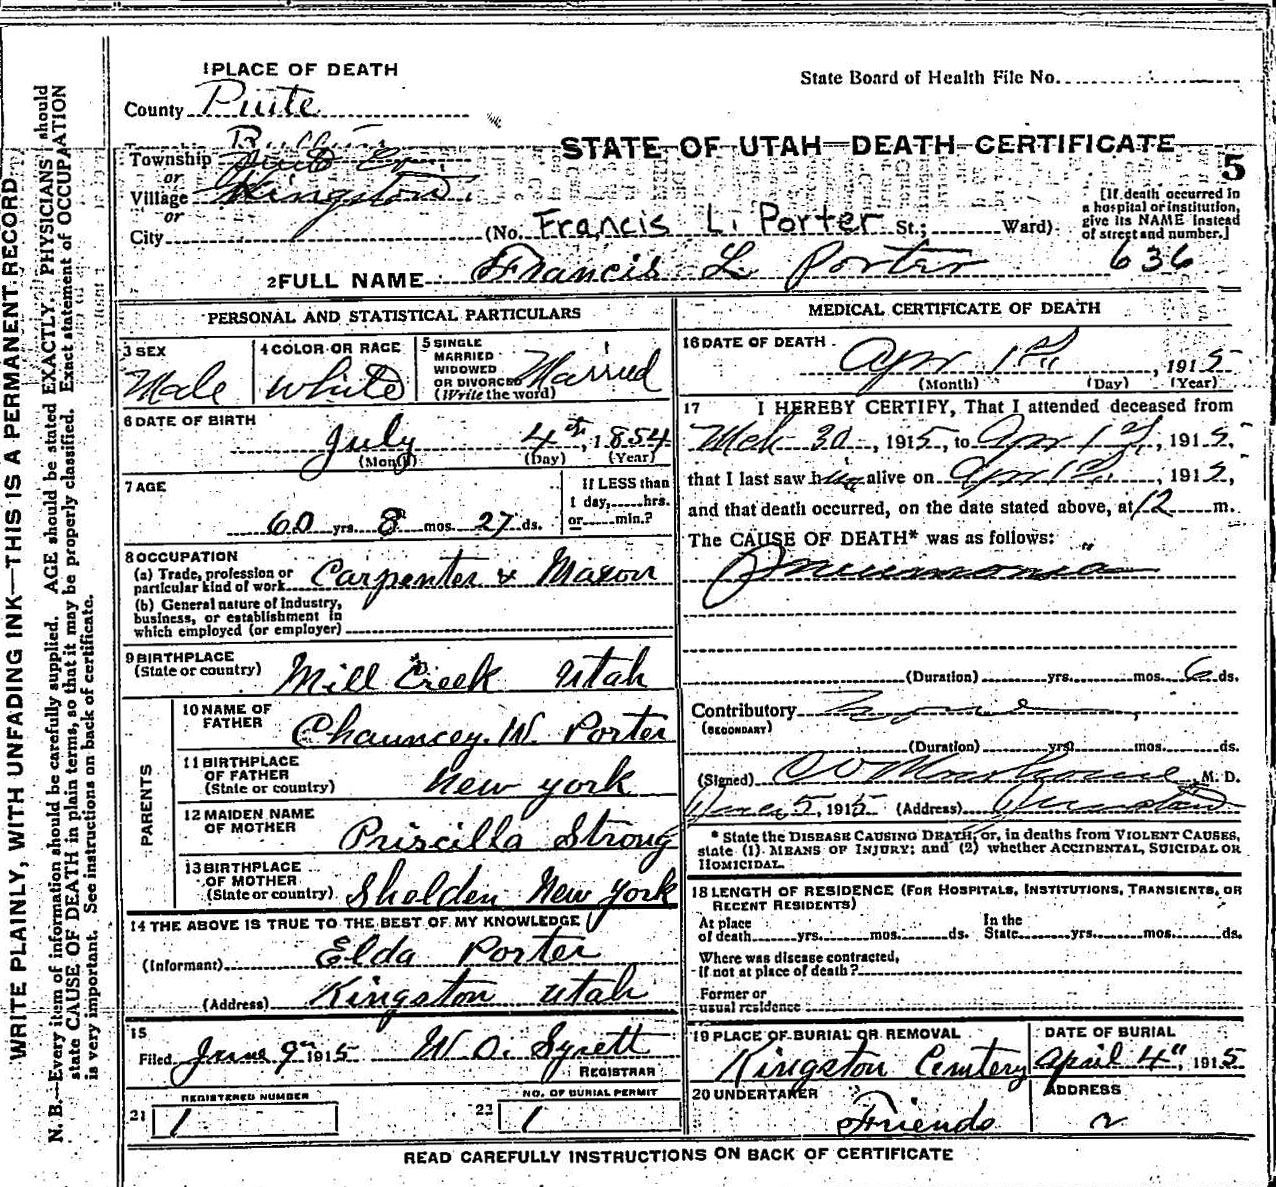 1 PLACE OF DEATH
State Board of Health File No.
County Piute
STATE OF UTAH—DEATH CERTIFICATE
5
Township
or
Village Kingston
or
City (No. Francis L. Porter St.; Ward)
[If death occurred in
a hospital or institution,
give its NAME instead
of street and number.]
636
2 FULL NAME Francis L Porter
PERSONAL AND STATISTICAL PARTICULARS
3 SEX
Male
4 COLOR OR RACE
White
5 SINGLE
MARRIED
WIDOWED
OR DIVORCED
(Write the word)
Married
6 DATE OF BIRTH
July 4th, 1854
(Month) (Day) (Year)
7 AGE
60 yrs. 8 mos. 27 ds.
If LESS than
1 day, hrs.
or min.?
8 OCCUPATION
(a) Trade, profession or
particular kind of work Carpenter & Mason
(b) General nature of Industry,
business, or establishment in
which employed (or employer)
9 BIRTHPLACE
(State or country) Mill Creek Utah
PARENTS
10 NAME OF
FATHER Chauncey. W. Porter
11 BIRTHPLACE
OF FATHER
(State or country) New York
12 MAIDEN NAME
OF MOTHER Priscilla Strong
13 BIRTHPLACE
OF MOTHER
(State or country) Shelden New York
14 THE ABOVE IS TRUE TO THE BEST OF MY KNOWLEDGE
(Informant) Elda Porter
(Address) Kingston Utah
15
Filed June 9th 1915 W. O. Syrett
REGISTRAR
REGISTERED NUMBER
21 1
NO. OF BURIAL PERMIT
22 1
MEDICAL CERTIFICATE OF DEATH
16 DATE OF DEATH
Apr 1st, 1915
(Month) (Day) (Year)
17 I HEREBY CERTIFY, That I attended deceased from
Mch 30, 1915, to Apr 1st, 1915,
that I last saw him alive on Apr 1st, 1915,
and that death occurred, on the date stated above, at 12 m.
The CAUSE OF DEATH* was as follows:
Pneumonia
(Duration) yrs. mos. 6 ds.
Contributory
(SECONDARY)
(Duration) yrs. mos. ds.
(Signed) M. D.
5, 1915 (Address)
* State the DISEASE CAUSING DEATH, or, in deaths from VIOLENT CAUSES,
state (1) MEANS OF INJURY; and (2) whether ACCIDENTAL, SUICIDAL OR
HOMICIDAL.
18 LENGTH OF RESIDENCE (FOR HOSPITALS, INSTITUTIONS, TRANSIENTS, OR
RECENT RESIDENTS)
At place
of death yrs. mos. ds.
In the
State yrs. mos. ds.
Where was disease contracted,
if not at place of death?
Former or
usual residence
19 PLACE OF BURIAL OR REMOVAL
Kingston Cemtery
DATE OF BURIAL
April 4", 1915
20 UNDERTAKER
Friends
ADDRESS
READ CAREFULLY INSTRUCTIONS ON BACK OF CERTIFICATE
WRITE PLAINLY, WITH UNFADING INK—THIS IS A PERMANENT RECORD
N. B.—Every item of information should be carefully supplied. AGE should be stated EXACTLY. PHYSICIANS should
state CAUSE OF DEATH in plain terms, so that it may be properly classified. Exact statement of OCCUPATION
is very important. See instructions on back of certificate.